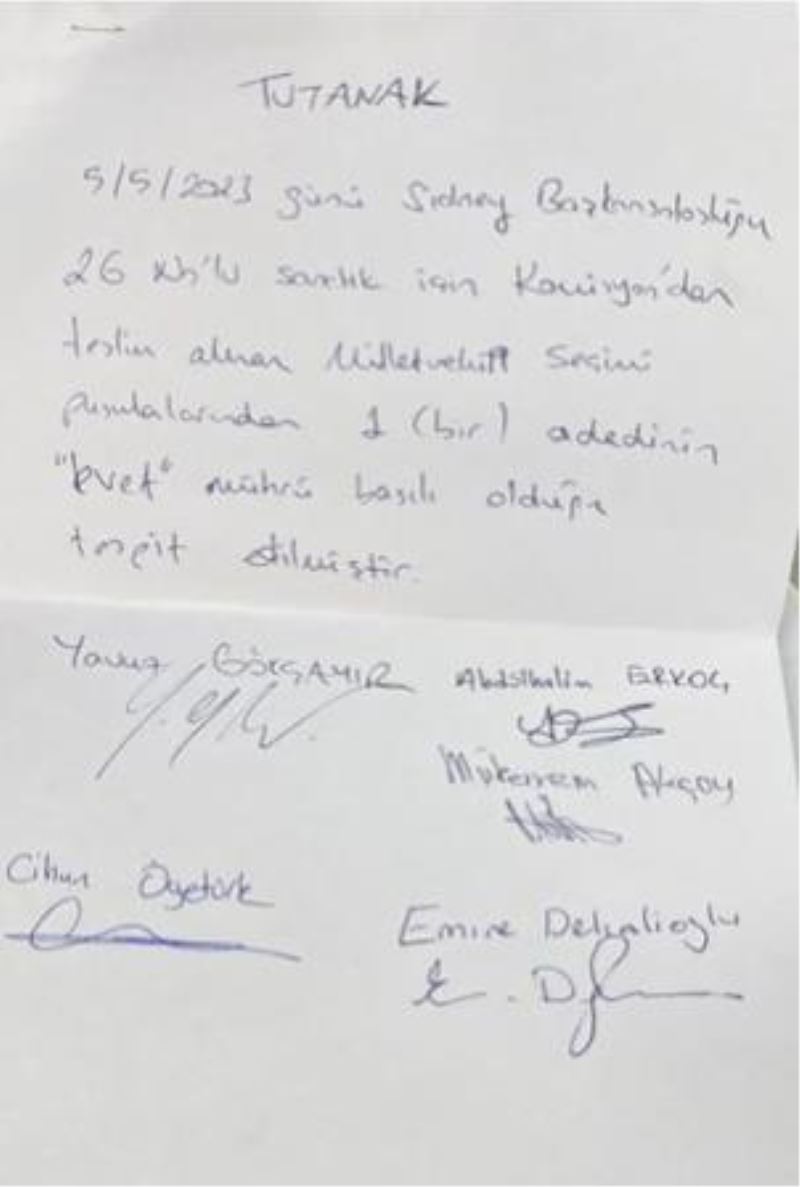 TUTANAK
5/5/2023 günü Sidney Başkonsolosluğu
26 No'lu sandık için Komisyon'dan
teslim alınan Milletvekili Seçimi
pusulalarından 1 (bir) adedinin
"evet" mührü basılı olduğu
tespit edilmiştir.
Yavuz Abdülhalim ERKOÇ
Mükerrem Akçoy
Cihan Öğetürk
Emine
E. D